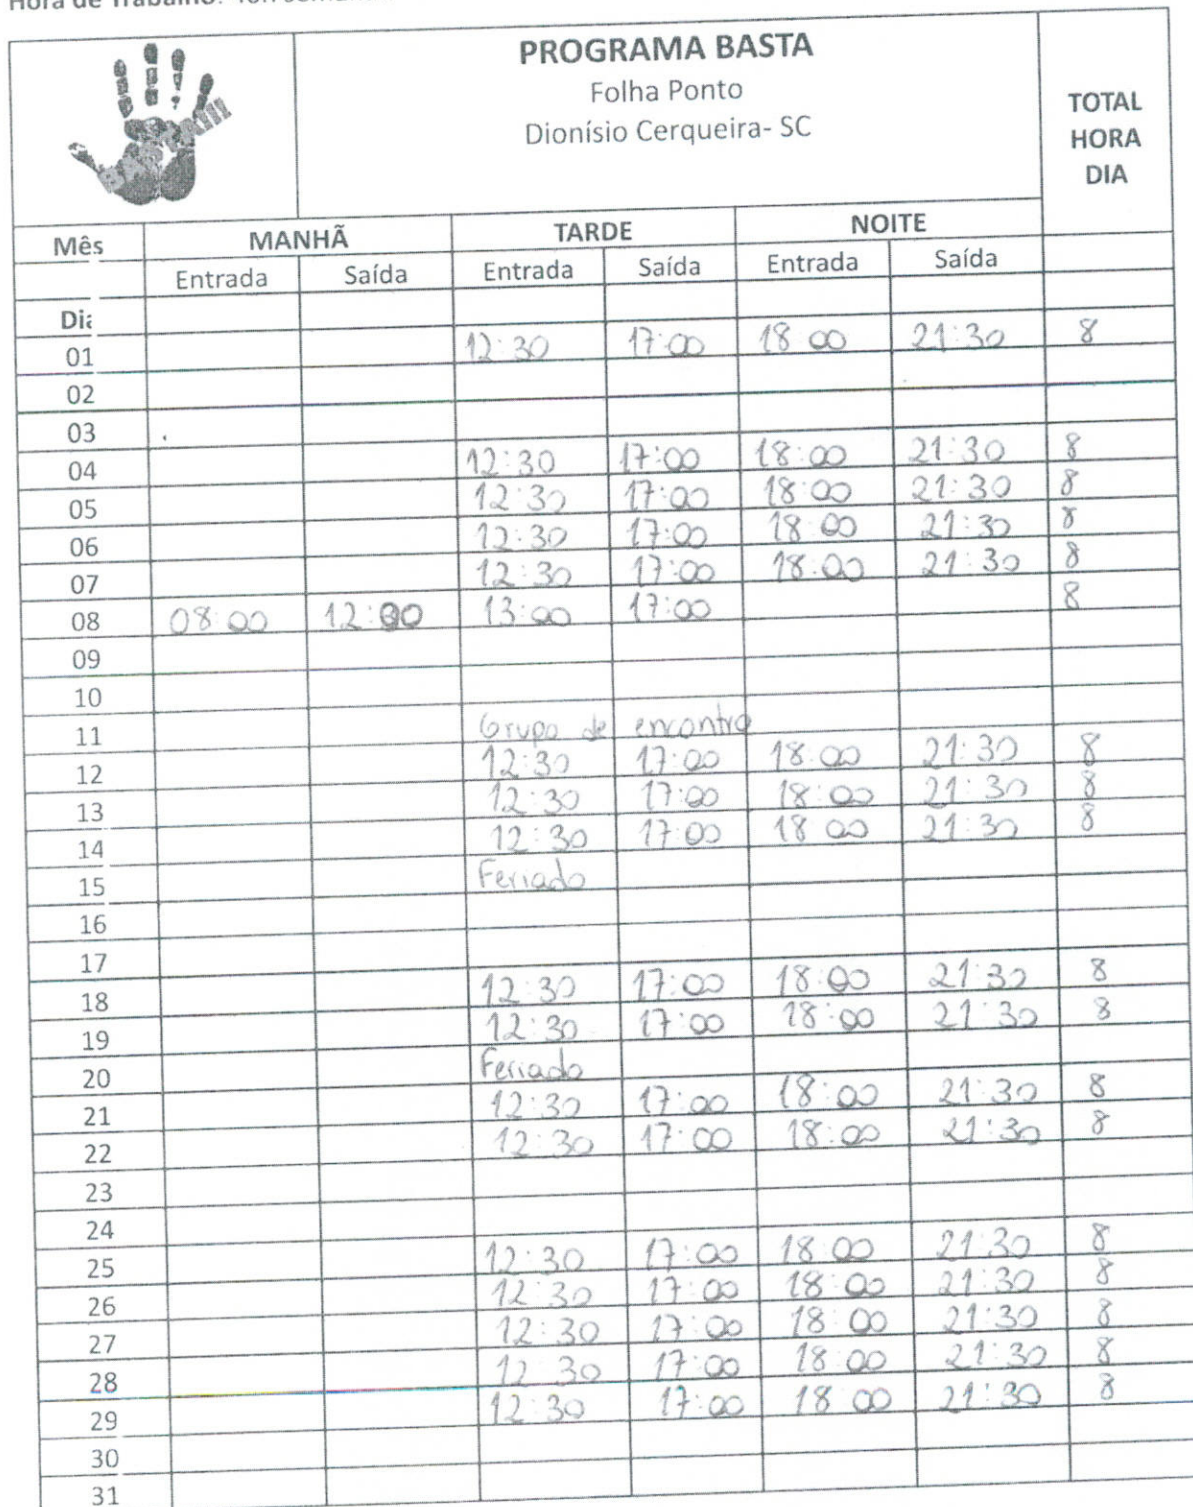 Hora de Trabalho:
BASTA!!!
PROGRAMA BASTA
Folha Ponto
Dionísio Cerqueira- SC
TOTAL
HORA
DIA
Mês MANHÃ TARDE NOITE
Entrada Saída Entrada Saída Entrada Saída
Dia
01 12:30 17:00 18:00 21:30 8
02
03
04 12:30 17:00 18:00 21:30 8
05 12:30 17:00 18:00 21:30 8
06 12:30 17:00 18:00 21:30 8
07 12:30 17:00 18:00 21:30 8
08 08:00 12:00 13:00 17:00 8
09
10
11 Grupo de encontro
12 12:30 17:00 18:00 21:30 8
13 12:30 17:00 18:00 21:30 8
14 12:30 17:00 18:00 21:30 8
15 Feriado
16
17
18 12:30 17:00 18:00 21:30 8
19 12:30 17:00 18:00 21:30 8
20 Feriado
21 12:30 17:00 18:00 21:30 8
22 12:30 17:00 18:00 21:30 8
23
24
25 12:30 17:00 18:00 21:30 8
26 12:30 17:00 18:00 21:30 8
27 12:30 17:00 18:00 21:30 8
28 12:30 17:00 18:00 21:30 8
29 12:30 17:00 18:00 21:30 8
30
31